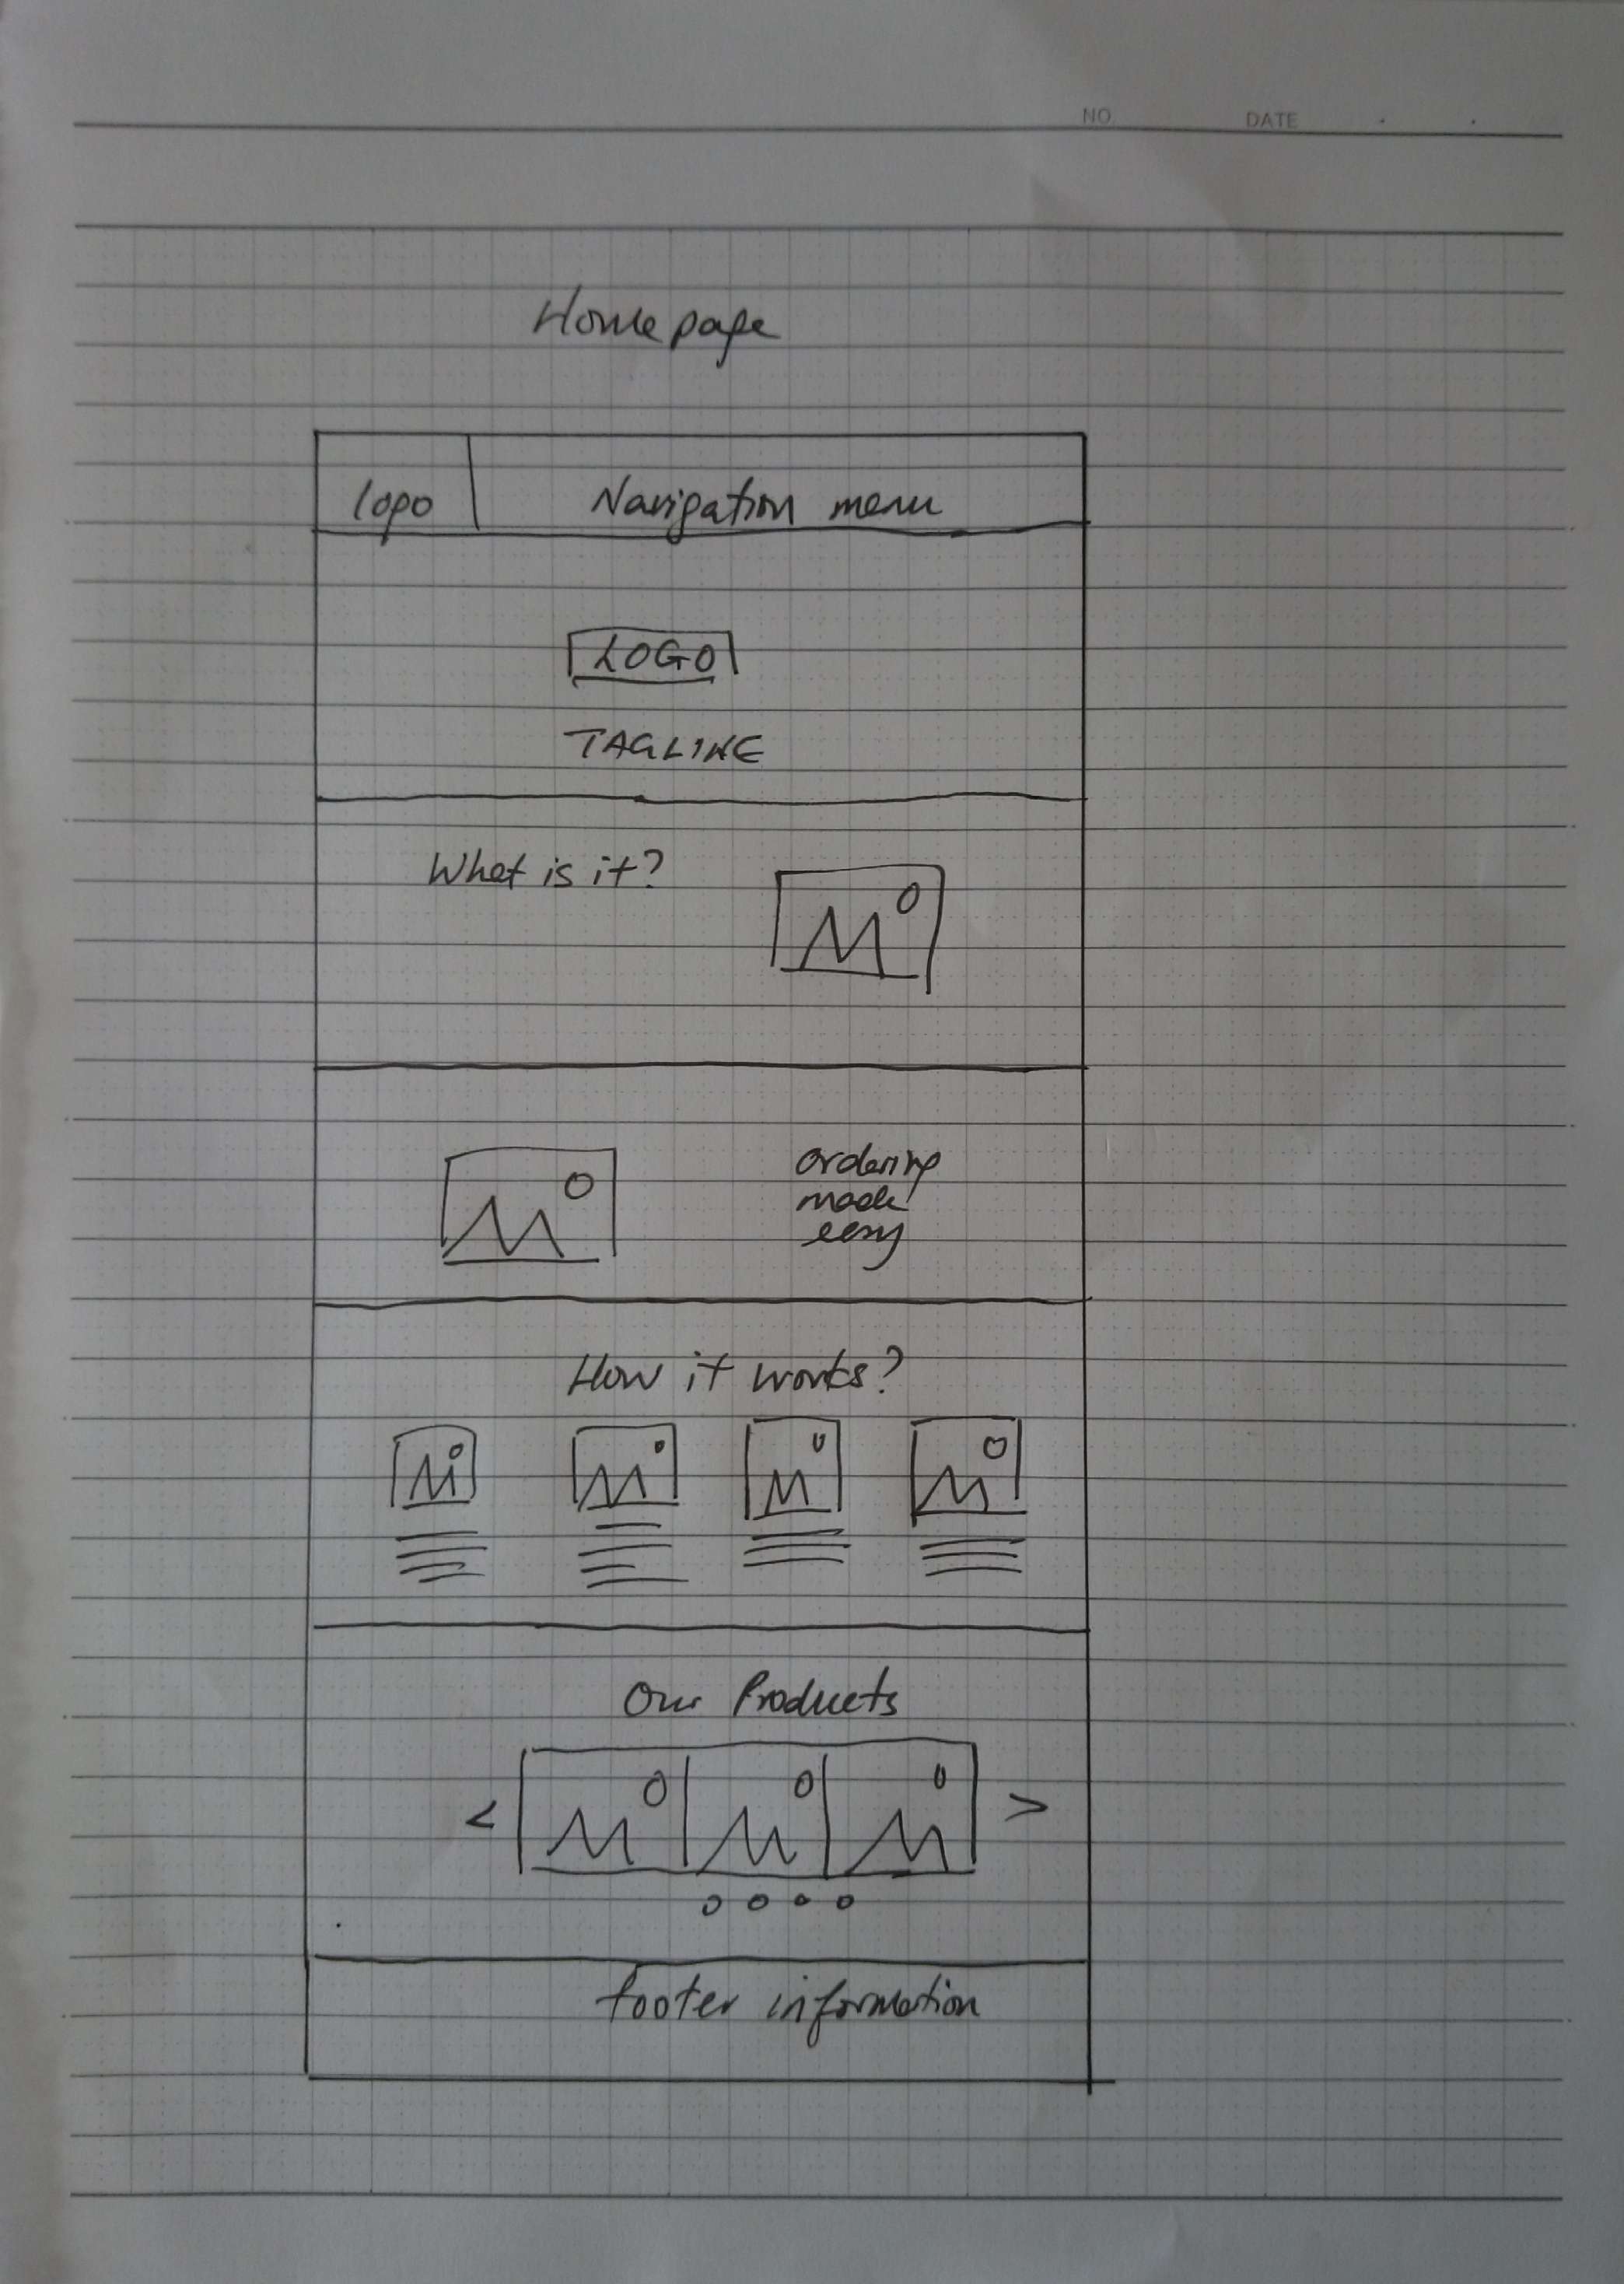 NO. DATE . .
Homepage
logo Navigation menu
LOGO
TAGLINE
What is it?
ordering
made
easy
How it works?
Our Products
< >
footer information